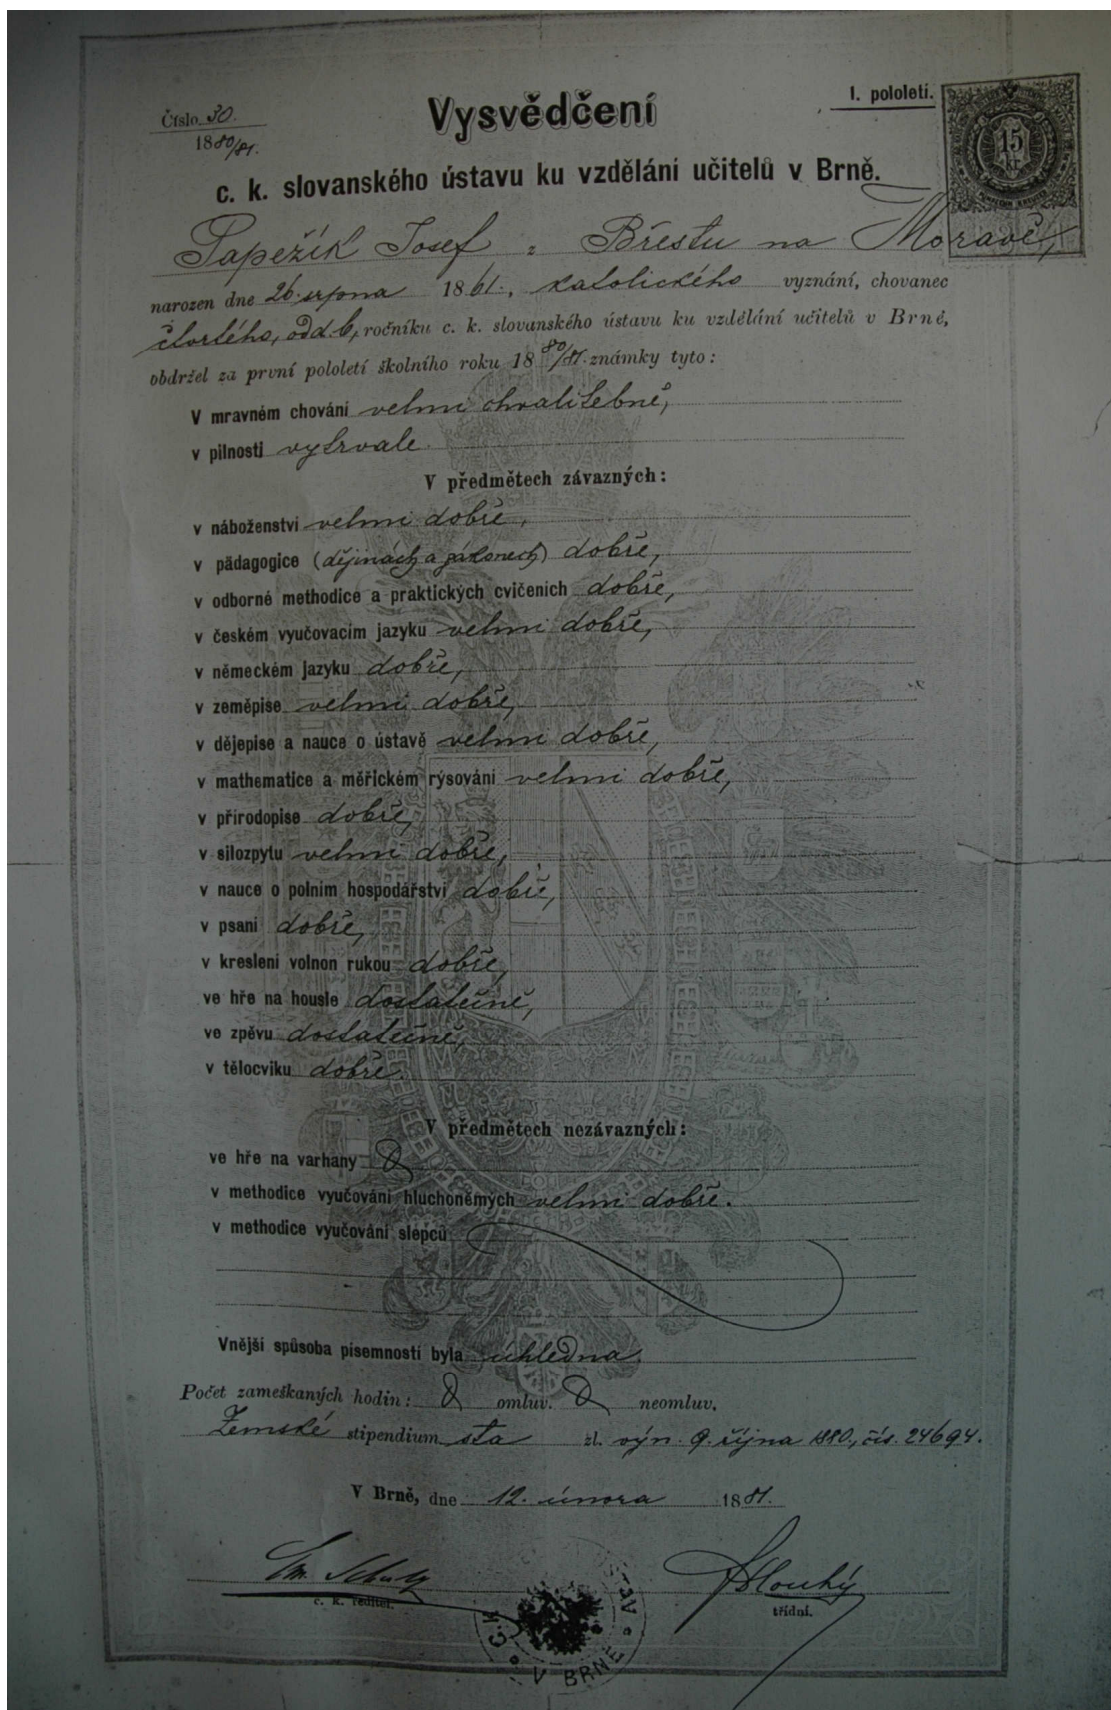 Číslo 30. I. pololetí.
1880/81.
Vysvědčení
15
KR
c. k. slovanského ústavu ku vzdělání učitelů v Brně.
Sapežík Josef z Břestu na Moravě,
narozen dne 26. srpna 1861, katolického vyznání, chovanec
čtvrtého, odd. b, ročníku c. k. slovanského ústavu ku vzdělání učitelů v Brně,
obdržel za první pololetí školního roku 1880/81 známky tyto:
V mravném chování velmi chvalitebně,
v pilnosti vytrvale.
V předmětech závazných:
v náboženství velmi dobře,
v pädagogice (dějinách a zákonech) dobře,
v odborné methodice a praktických cvičeních dobře,
v českém vyučovacím jazyku velmi dobře,
v německém jazyku dobře,
v zeměpise velmi dobře,
v dějepise a nauce o ústavě velmi dobře,
v mathematice a měřickém rýsování velmi dobře,
v přírodopise dobře,
v silozpytu velmi dobře,
v nauce o polním hospodářství dobře,
v psaní dobře,
v kreslení volnou rukou dobře,
ve hře na housle dostatečně,
ve zpěvu dostatečně,
v tělocviku dobře.
V předmětech nezávazných:
ve hře na varhany
v methodice vyučování hluchoněmých velmi dobře.
v methodice vyučování slepců
Vnější spůsoba písemností byla úhledna.
Počet zameškaných hodin: 0 omluv. 0 neomluv.
Zemské stipendium sta zl. výn. 9. října 1880, čís. 24694.
V Brně, dne 12. února 1881.
Em. Schulz Hlouhý
c. k. ředitel. třídní.
C. K. ÚSTAV V BRNĚ